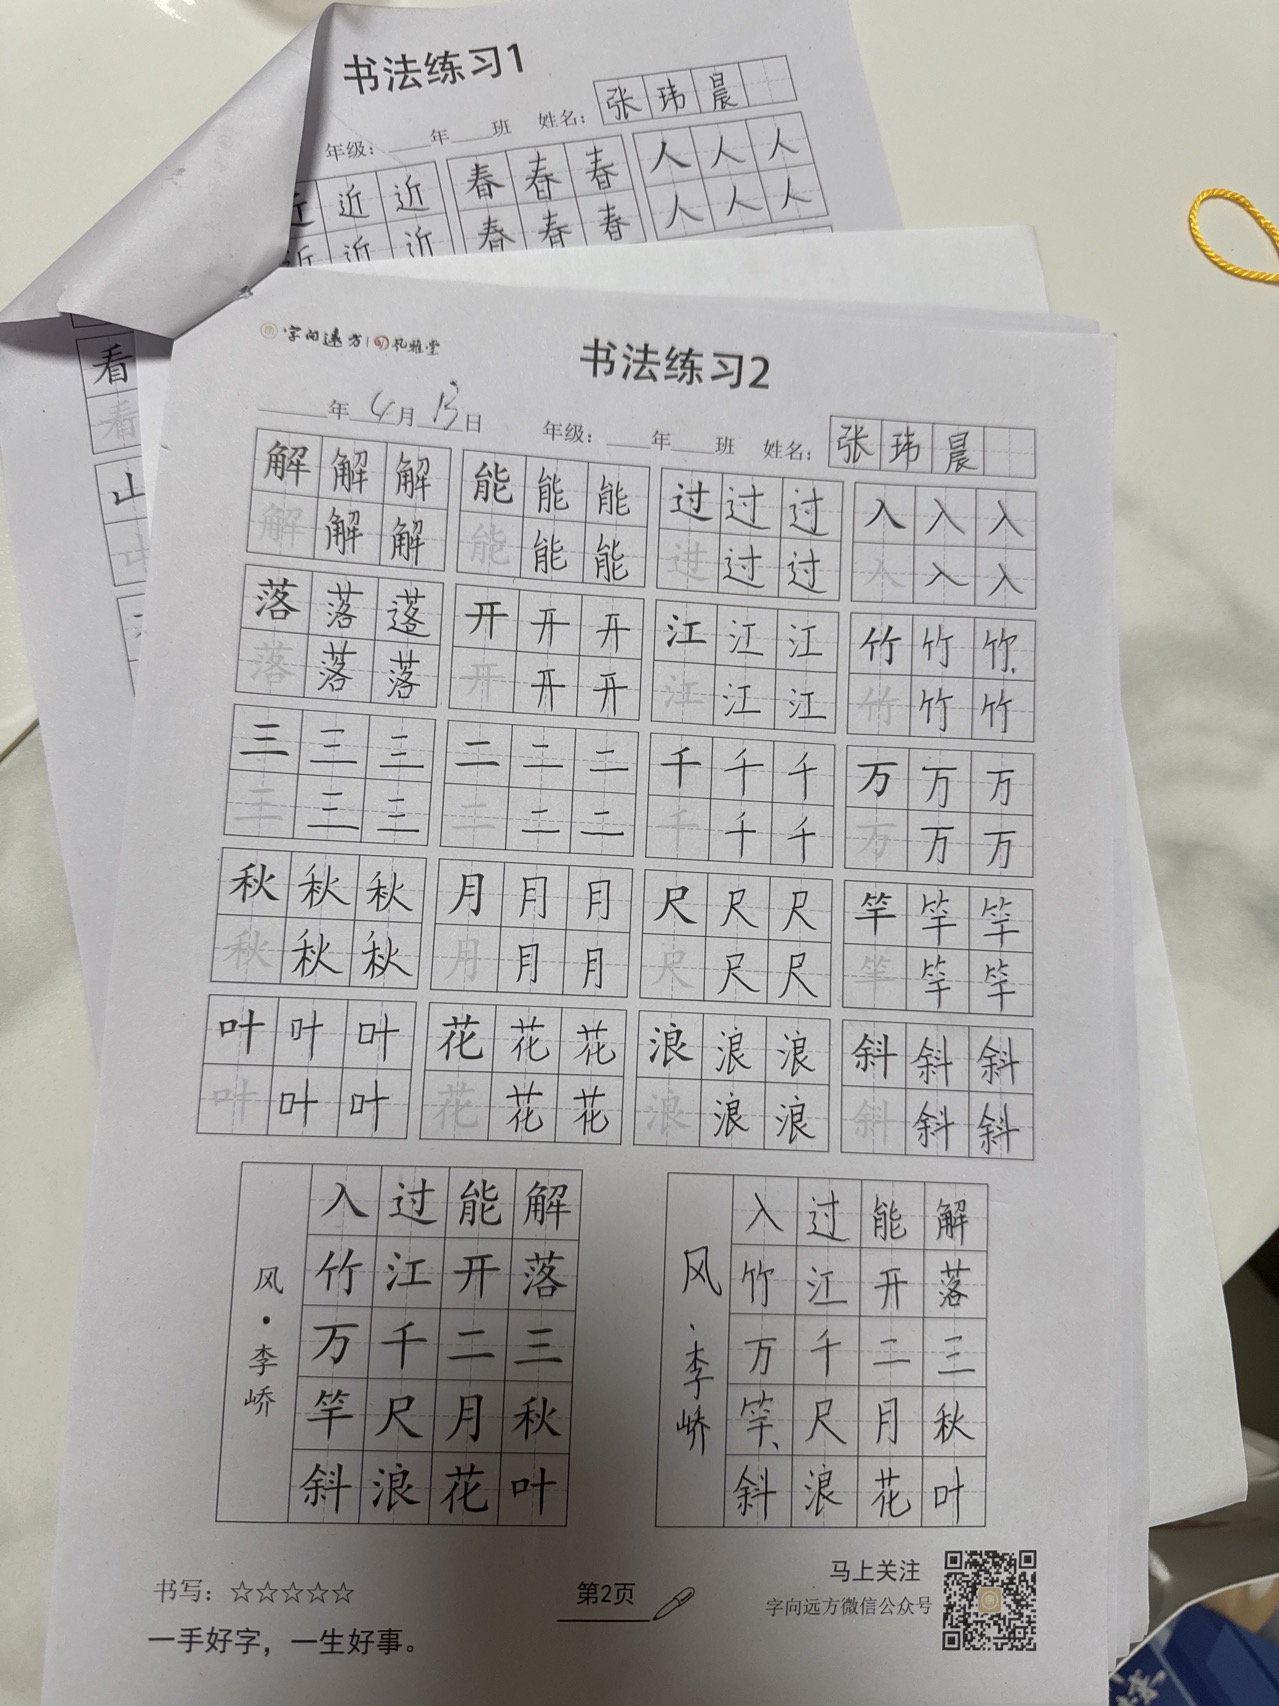 书法练习1
年级：___年___班 姓名：张玮晨
近 近 近 春 春 春 人 人 人
近 近 近 春 春 春 人 人 人
看
看
山
山
字向远方 | 礼雅堂
书法练习2
___年 4月 13日 年级：___年___班 姓名：张玮晨
解 解 解 能 能 能 过 过 过 入 入 入
解 解 解 能 能 能 过 过 过 入 入 入
落 落 蓬 开 开 开 江 江 江 竹 竹 竹
落 落 落 开 开 开 江 江 江 竹 竹 竹
三 三 三 二 二 二 千 千 千 万 万 万
三 三 三 二 二 二 千 千 千 万 万 万
秋 秋 秋 月 月 月 尺 尺 尺 竿 竿 竿
秋 秋 秋 月 月 月 尺 尺 尺 竿 竿 竿
叶 叶 叶 花 花 花 浪 浪 浪 斜 斜 斜
叶 叶 叶 花 花 花 浪 浪 浪 斜 斜 斜
解落三秋叶
能开二月花
过江千尺浪
入竹万竿斜
风·李峤
解落三秋叶
能开二月花
过江千尺浪
入竹万竿斜
风、李峤
书写：☆☆☆☆☆
一手好字，一生好事。
第2页
马上关注
字向远方微信公众号